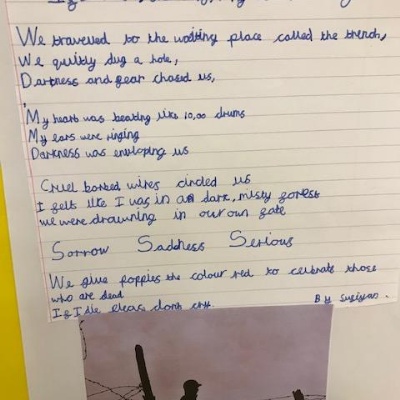 We travelled to the waiting place called the trench,
We quitly dug a hole,
Darkness and fear chased us,
My heart was beating like 10,00 drums
My ears were ringing
Darkness was enveloping us
Cruel barbed wires circled us
I felt like I was in an dark, misty forest
we were drawning in our own fate
Sorrow Saddness Serious
We glue poppies the colour red to celbrate those
who are dead
If I die pleas dont cry.
By